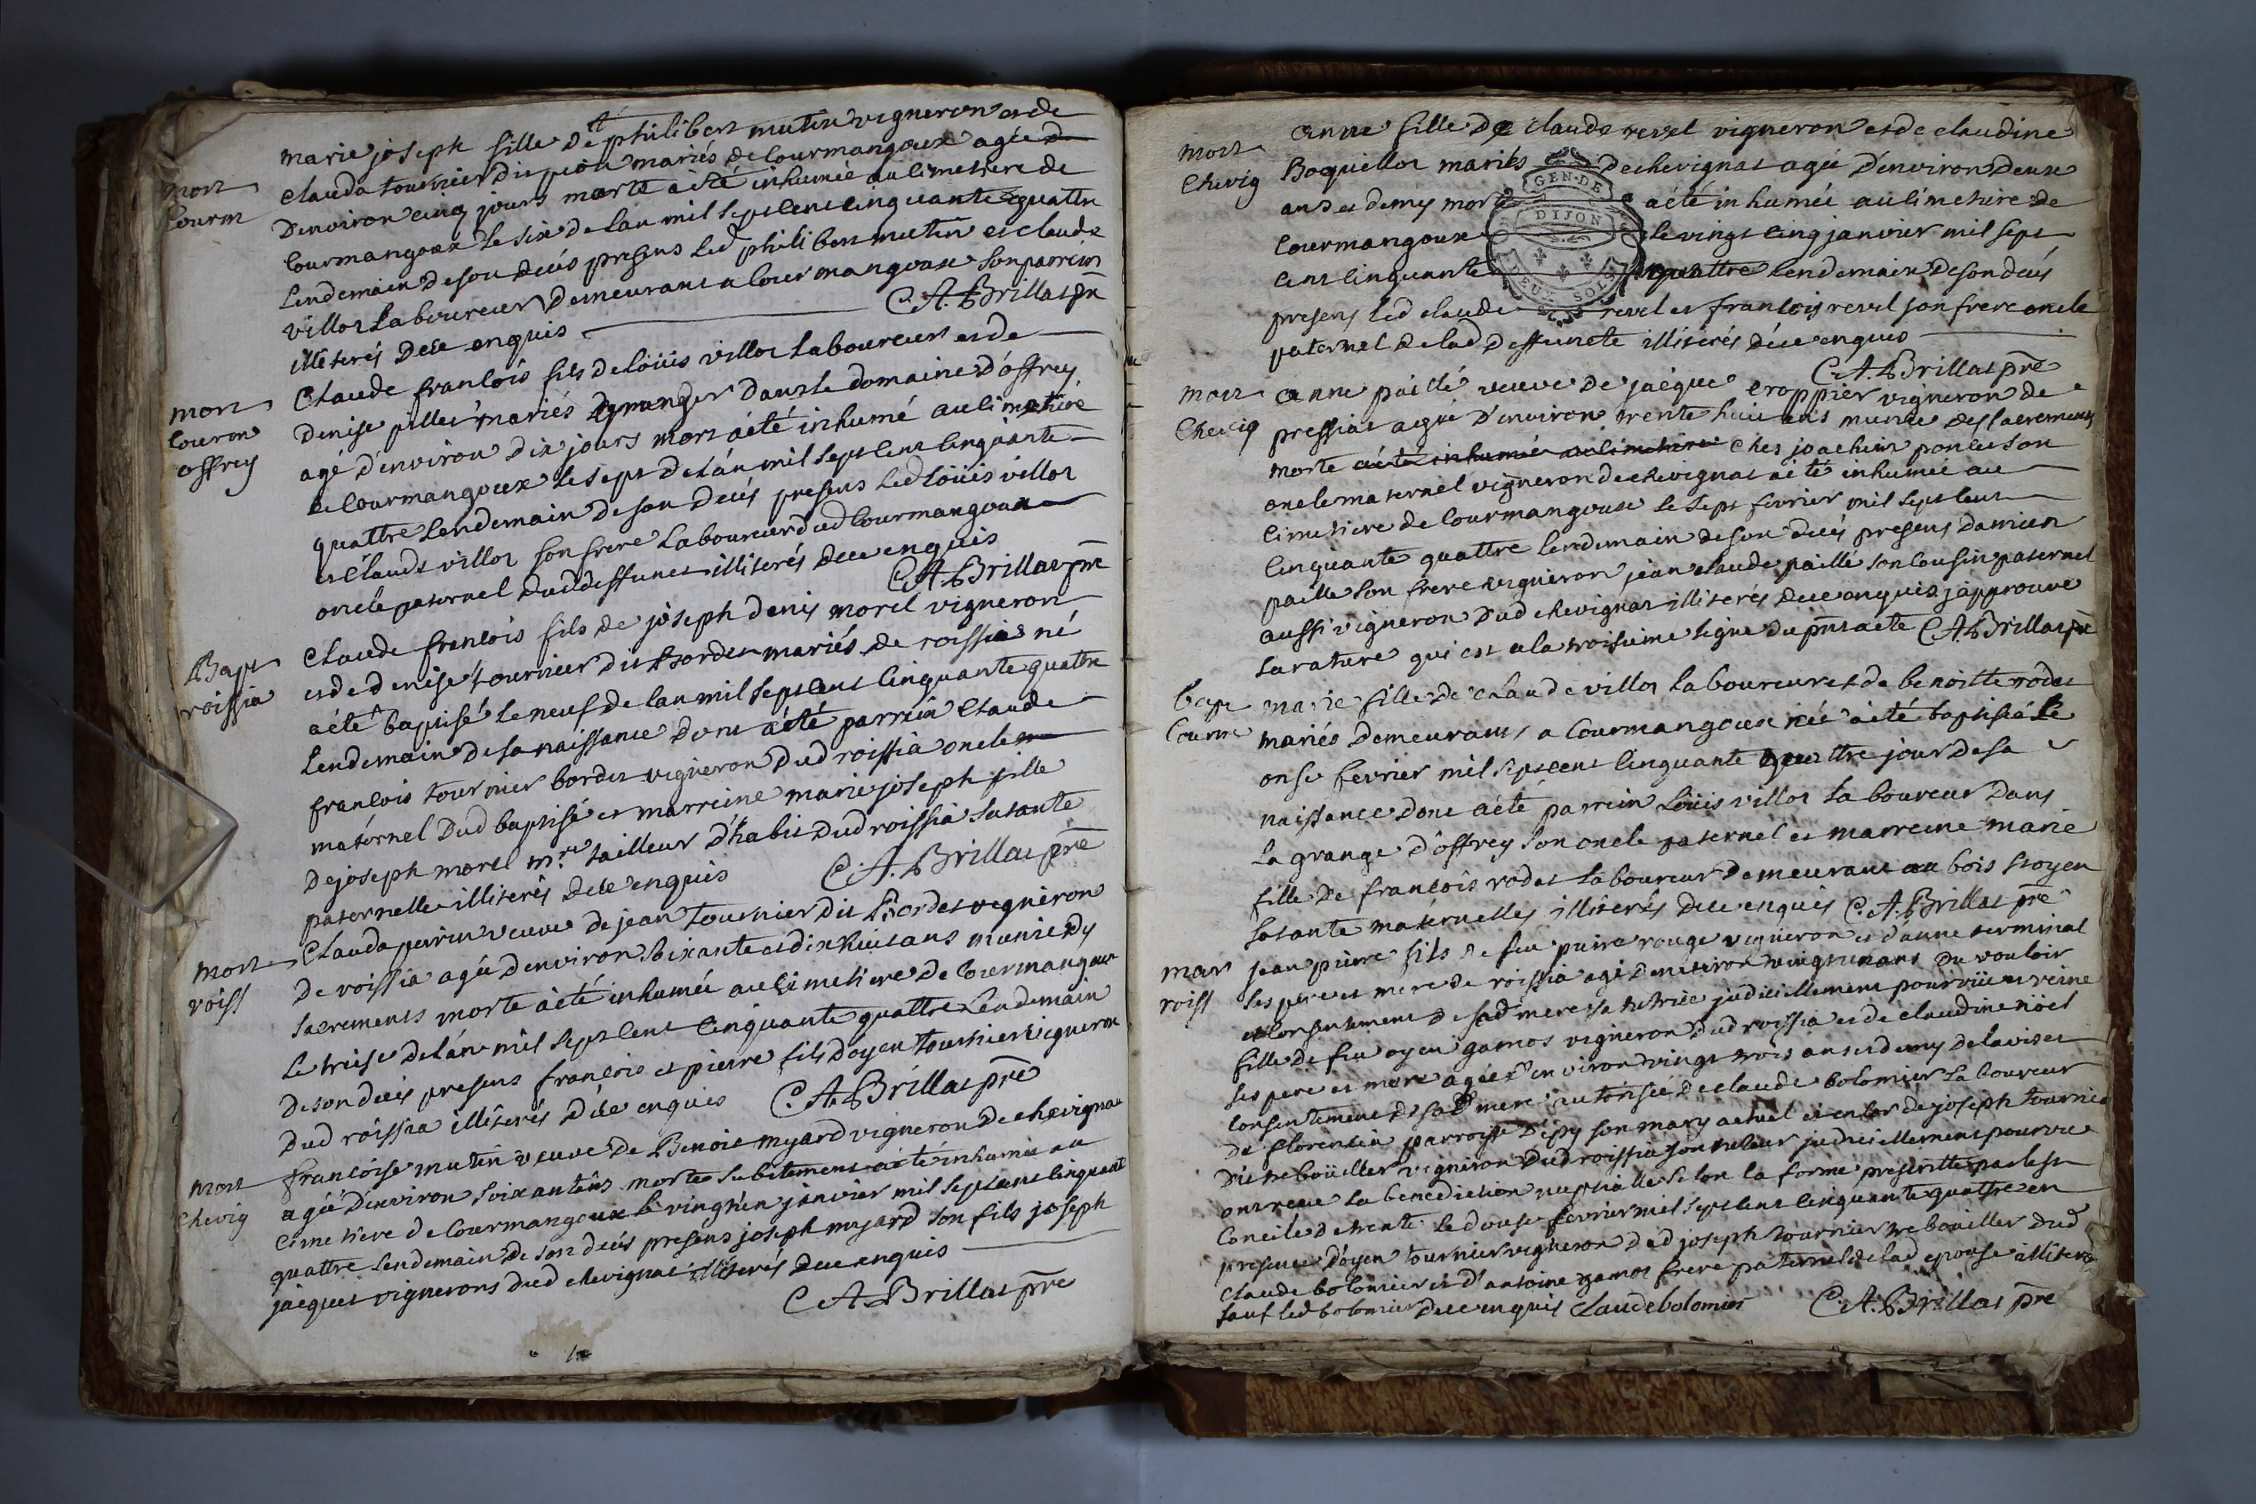 mort
Courm
marie joseph fille de philibert mutin vigneron et de
clauda tournier dit piou mariés de Courmangoux agée d
d'environ cinq jours morte a été inhumée au cimetiere de
Courmangoux le six de l'an mil sept cent cinquante quattre
lendemain de son décés presens led philibert mutin et claude
villot laboureur demeurant a Courmangoux son parrein
illiterés de ce enquis C. A. Brillat pre
mort
Courm
offrey
Claude françois fils de Loüis villot laboureur et de
denise pillet mariés dans le domaine d'offrey
agé d'environ dix jours mort a été inhumé au cimetiere
de Courmangoux le sept de l'an mil sept cent cinquante
quattre lendemain de son décés presens led Loüis villot
et Claude villot son frere laboureur dud Courmangoux
oncle paternel dud deffunct illiterés de ce enquis
C. A. Brillat pre
Bapt
roissia
Claude françois fils de joseph denis morel vigneron
et de denise tournier dit bordet mariés de roissia né
a été baptisé le neuf de l'an mil sept cent cinquante quattre
lendemain de sa naissance dont a été parrein Claude
françois tournier bordet vigneron dud roissia oncle
maternel dud baptisé et marreine marie joseph fille
de joseph morel mre tailleur d'habit dud roissia sa tante
paternelle illiterés de ce enquis C. A. Brillat pre
mort
roiss
Clauda perrin veuve de jean tournier dit Bordet vigneron
de roissia agée d'environ soixante et dix huit ans munie des
sacremens morte a été inhumée au cimetiere de Courmangoux
le treise de l'an mil sept cent cinquante quattre lendemain
de son décés presens françois et pierre fils d'oyen tournier vigneron
dud roissia illiterés de ce enquis C. A. Brillat pre
mort
chevig
françoise mutin veuve de Benoit myard vigneron de chevignat
agée d'environ soixant ans morte subitement a été inhumée au
cimetiere de Courmangoux le vingt un janvier mil sept cent cinquant
quattre lendemain de son décés presens joseph myard son fils joseph
jacquet vignerons dud chevignat illiterés de ce enquis
C. A. Brillat pre
mort
Chevig
anne fille de claude revel vigneron et de claudine
Boquillot mariés de chevignat agée d'environ deux
ans et demy morte a été inhumée au cimetiere de
Courmangoux le vingt cinq janvier mil sept
cent cinquante quattre lendemain de son décés
presens led claude revel et françois revel son frere oncle
paternel de lad deffuncte illiterés de ce enquis
C. A. Brillat pre
GEN. DE
DIJON
DEUX SOLS
mort
Chevig
anne paillé veuve de jacque croppier vigneron de
pressiat agée d'environ trente huit ans munie des sacremens
morte a été inhumée au cimetiere ches joachim poncet son
oncle maternel vigneron de chevignat a été inhumée au
cimetiere de Courmangoux le sept fevrier mil sept cent
cinquante quattre lendemain de son décés presens damien
paillé son frere vigneron jean claude paillé son cousin paternel
aussi vigneron dud chevignat illiterés de ce enquis j'approuve
la rature qui est a la troisieme ligne du pnt acte C. A. Brillat pre
bapt
Courm
marie fille de claude villot laboureur et de benoitte rodet
mariés demeurants a Courmangoux née a été baptisée le
onse fevrier mil sept cent cinquante quattre jour de sa
naissance dont a été parrein Loüis villot laboureur dans
la grange d'offrey son oncle paternel et marreine marie
fille de françois rodet laboureur demeurant au bois st oyen
sa tante maternelle illiterés de ce enquis C. A. Brillat pre
mar
roiss
jean pierre fils de feu pierre rouge vigneron et d'anne terminal
ses pere et mere de roissia agé d'environ vingt un ans du vouloir
et consentement de sad mere sa tutrice judiciellement pourvüe et reine
fille de feu oyen gamot vigneron dud roissia et de claudine nöel
ses pere et mere agée d'environ vingt trois ans et demy de l'avis et
consentement de sad mere autorisée de claude bolomier laboureur
de florentia parroisse d'epy son mary actuel et encor de joseph tournier
dit vigneron dud roissia son tuteur judiciellement pourvu
ont receu la benediction nuptialle selon la forme prescritte par le st
Concile de trente le douse fevrier mil sept cent cinquante quattre en
presence d'oyen tournier vigneron dud joseph tournier dud
claude bolomier et d'antoine gamot frere paternel de lad epouse illiterés
sauf led bolomier de ce enquis Claude bolomier C. A. Brillat pre